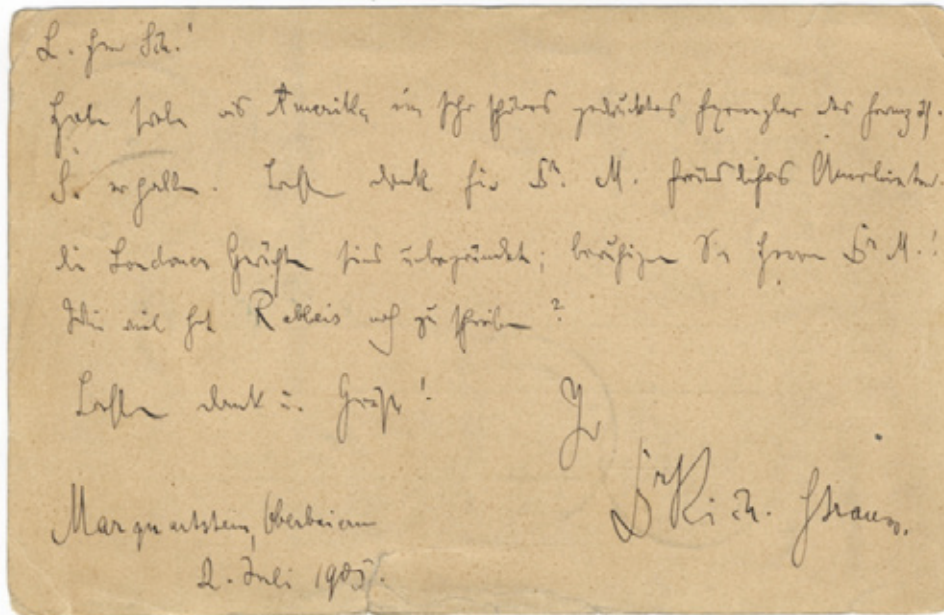 L. Herr Sch.!
Habe soeben aus Amerika ein sehr schönes gedrucktes Exemplar des französ.
S. erhalten. Besten Dank für Dr. M. freundliches Anerbieten.
die Londoner Gerüchte sind unbegründet; beruhigen Sie Herrn Dr M.!
Wie viel hat noch zu schreiben?
Besten Dank u. Gruß! Ihr
Dr Rich. Strauss.
Marquartstein, Oberbaiern
2. Juli 1905.